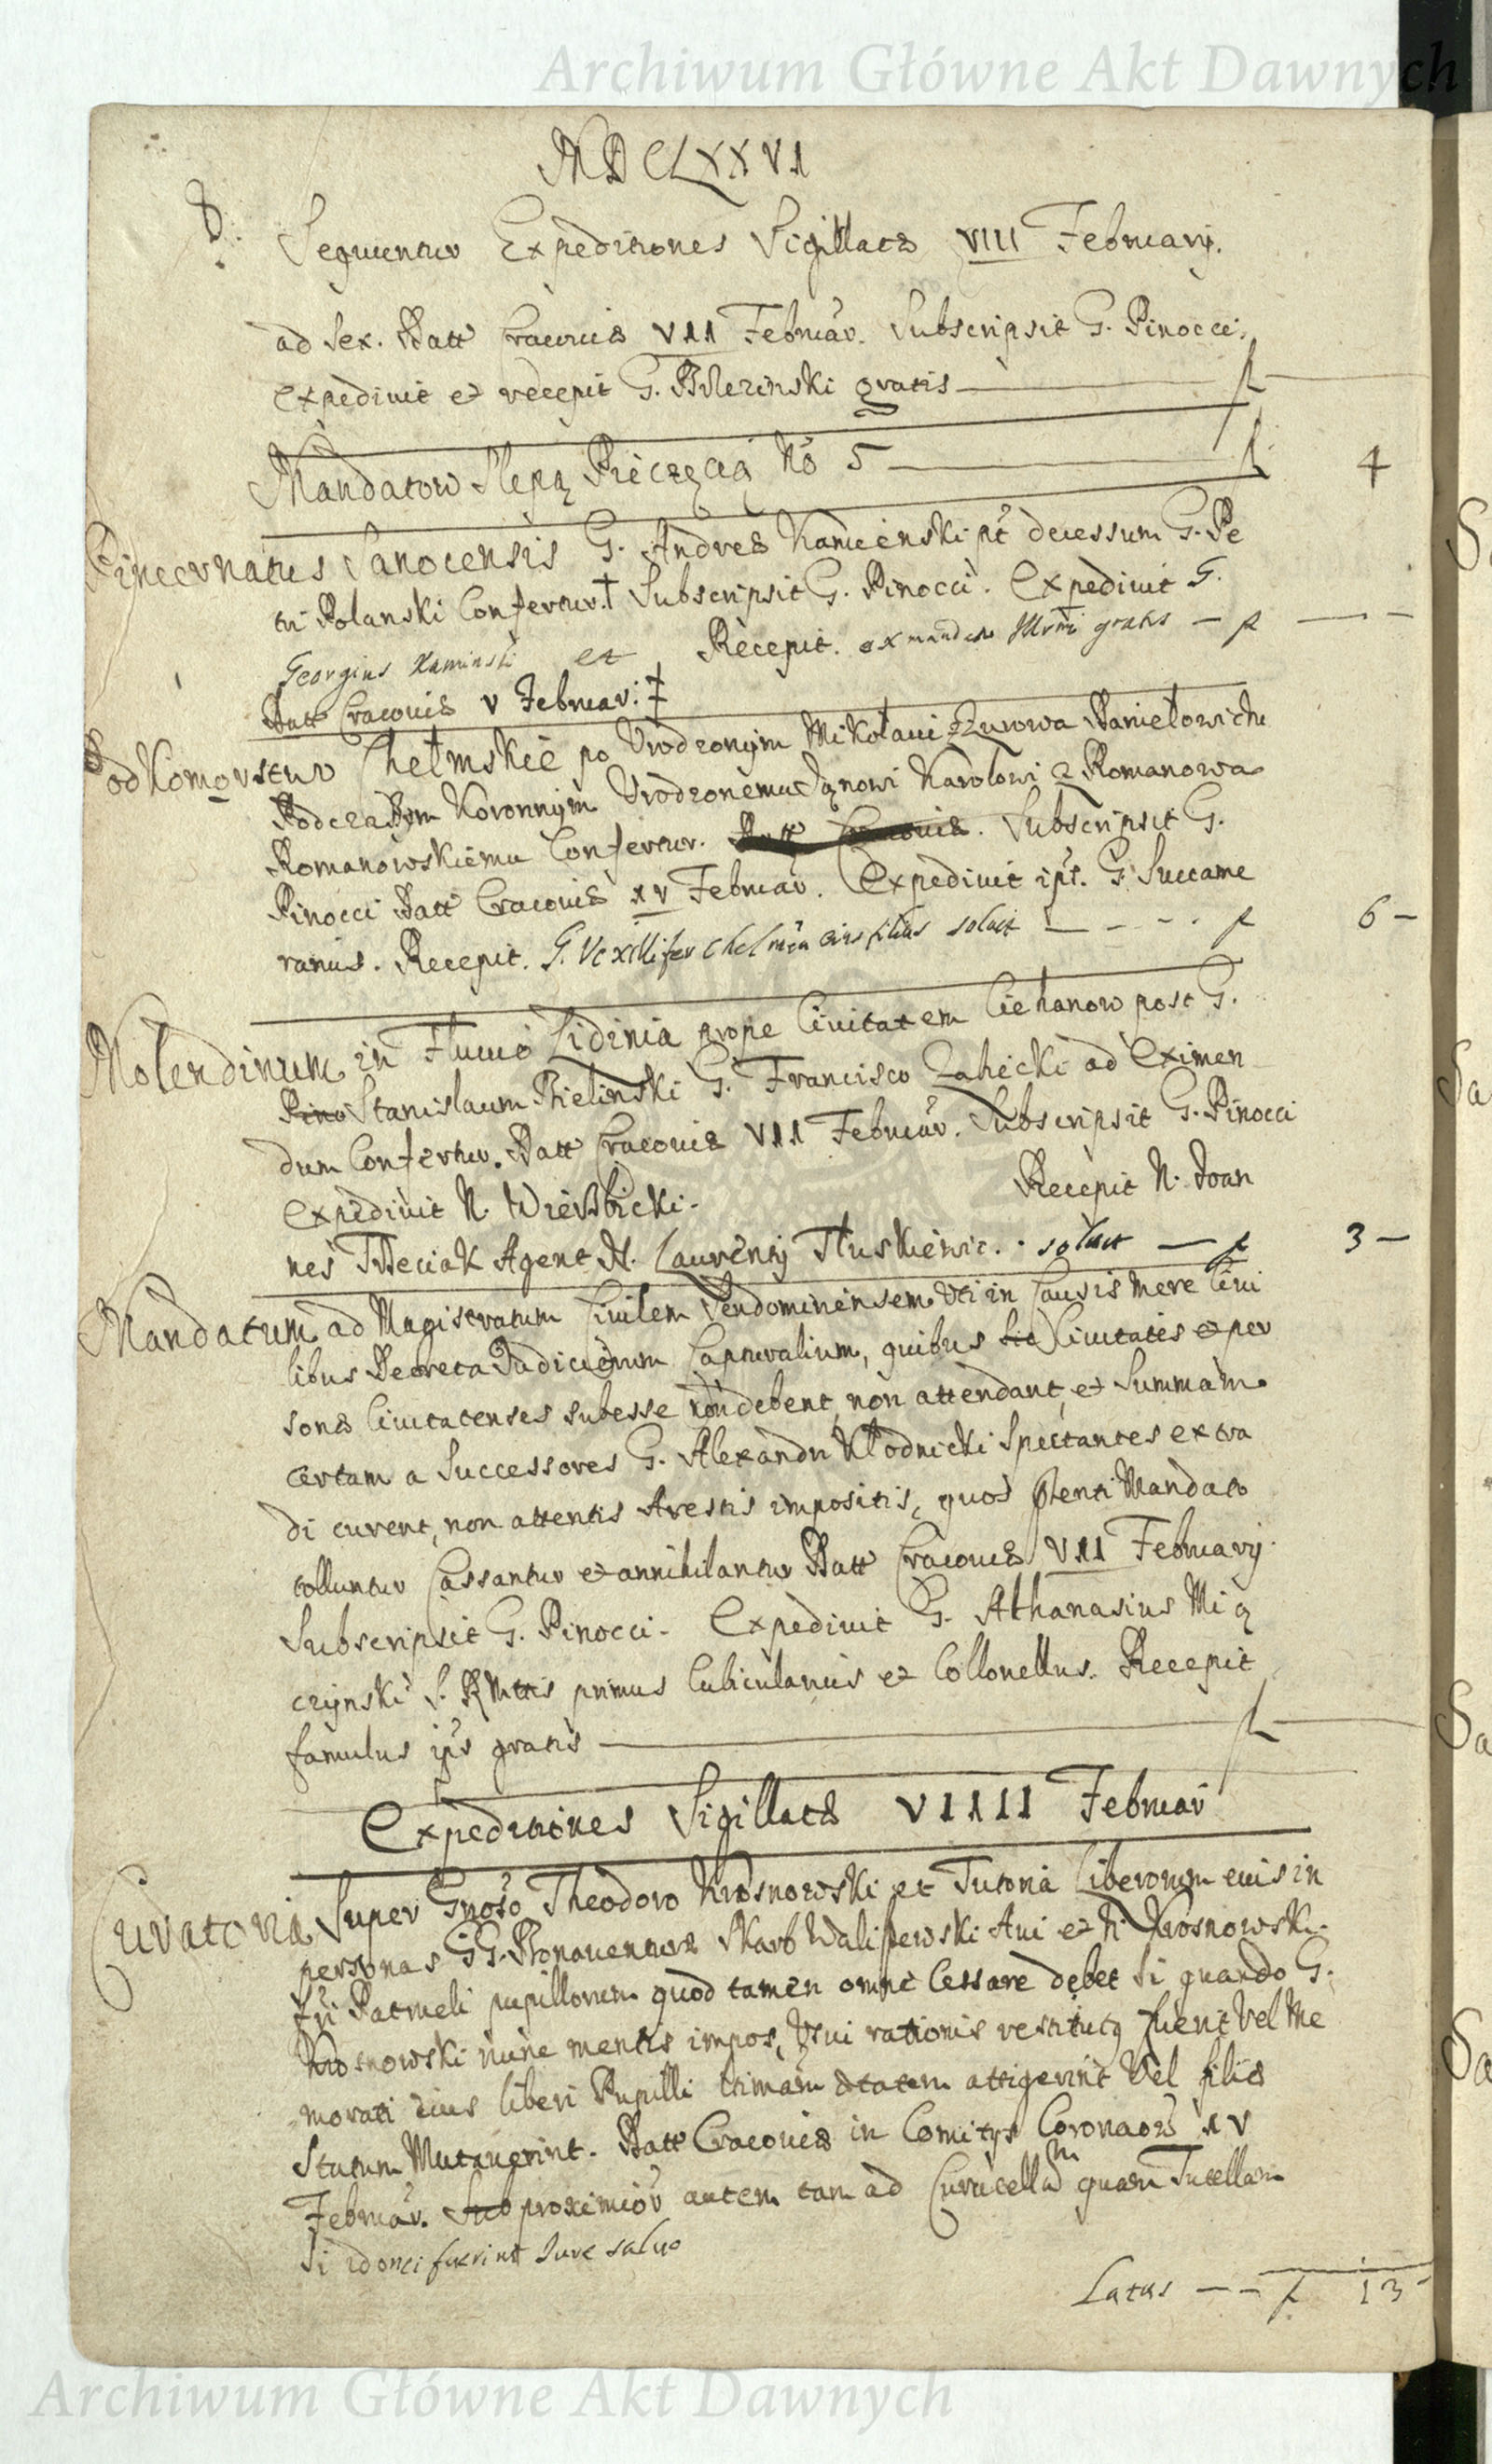 Archiwum Główne Akt Dawnych
MDCLXXVI
8.
Sequuntur Expeditiones Sigillatæ VIII Februarij.
ad Sex. Datt Cracoviæ VII Februar. Subscripsit G. Pinocci,
expedivit et recepit G. gratis — f —
Mandatow Slepą Pieczęcią No 5 — f 4
Pincernatus Sanocensis G. Andreæ Kamienski pt decessum G. Pe
tri Polanski Confertur.† Subscripsit G. Pinocci. Expedivit G.
Georgius Kaminski et Recepit. ex mandato Illrmi gratis — f — —
Datt Cracoviæ V Februar. ‡
Podkomorstwo Chełmskie po Urodzonym Mikołaiu z Zurowa Daniełowichu
Podczaszym Koronnym Urodzonemu Janowi Karolowi z Romanowa
Romanowskiemu Confertur. Datt Cracoviæ. Subscripsit G.
Pinocci Datt Cracoviæ XV Februar. Expedivit ips. G. Succame
rarius. Recepit. G. Vexillifer Chelmen eius filius soluit — — — f 6 —
Molendinum in Fluvio Lidinia prope Civitatem Ciehanow post G.
Pino Stanislaum Bielinski G. Francisco Zalucki ad Eximen
dum Confertur. Datt Cracoviæ VII Februar. Subscripsit G. Pinocci
expedivit N. Recepit N. Joan
nes Treciak Agent N. Laurentij Tluskiewic. soluit — f 3 —
Mandatum ad Magistratum Civilem Sendomiriensem Uti in Causis mere Civi
libus Decreta Judiciorum Capturalium, quibus hic Civitates et per
sonæ Civitatenses subesse non debent, non attendant, et Summam
certam a Successores G. Alexandri Kłodnicki Spectantes extra
di curent, non attentis Arestis impositis, quos pnti Mandato
tolluntur Cassantur et annihilantur Datt Cracoviæ VII Februarij.
Subscripsit G. Pinocci. Expedivit G. Athanasius Mią
czynski S. R Mttis primus Cubicularius et Collonellus. Recepit
famulus ips gratis — f —
Expeditiones Sigillatæ VIIII Februar
Curatoria Super Gnoso Theodoro Krosnowski et Tutoria Liberorum eius in
personas GG. Bonaventuræ Skarb Waliszewski Avi et N. Krosnowski
fri Patrueli pupillorum quod tamen omne Cessare debet Si quando G.
Krosnowski nunc mentis impos, Usui rationis restitutq fuerit Vel Me
morati eius liberi Pupilli ltimam ætatem attigerint Vel filiæ
Statum Mutaverint. Datt Cracoviæ in Comitijs Coronaõis XV
Februar. Sub proximior autem tam ad Curatellam quam Tutellam
Si idonei fuerint Jure saluo
Latus — — f 13 —
Archiwum Główne Akt Dawnych